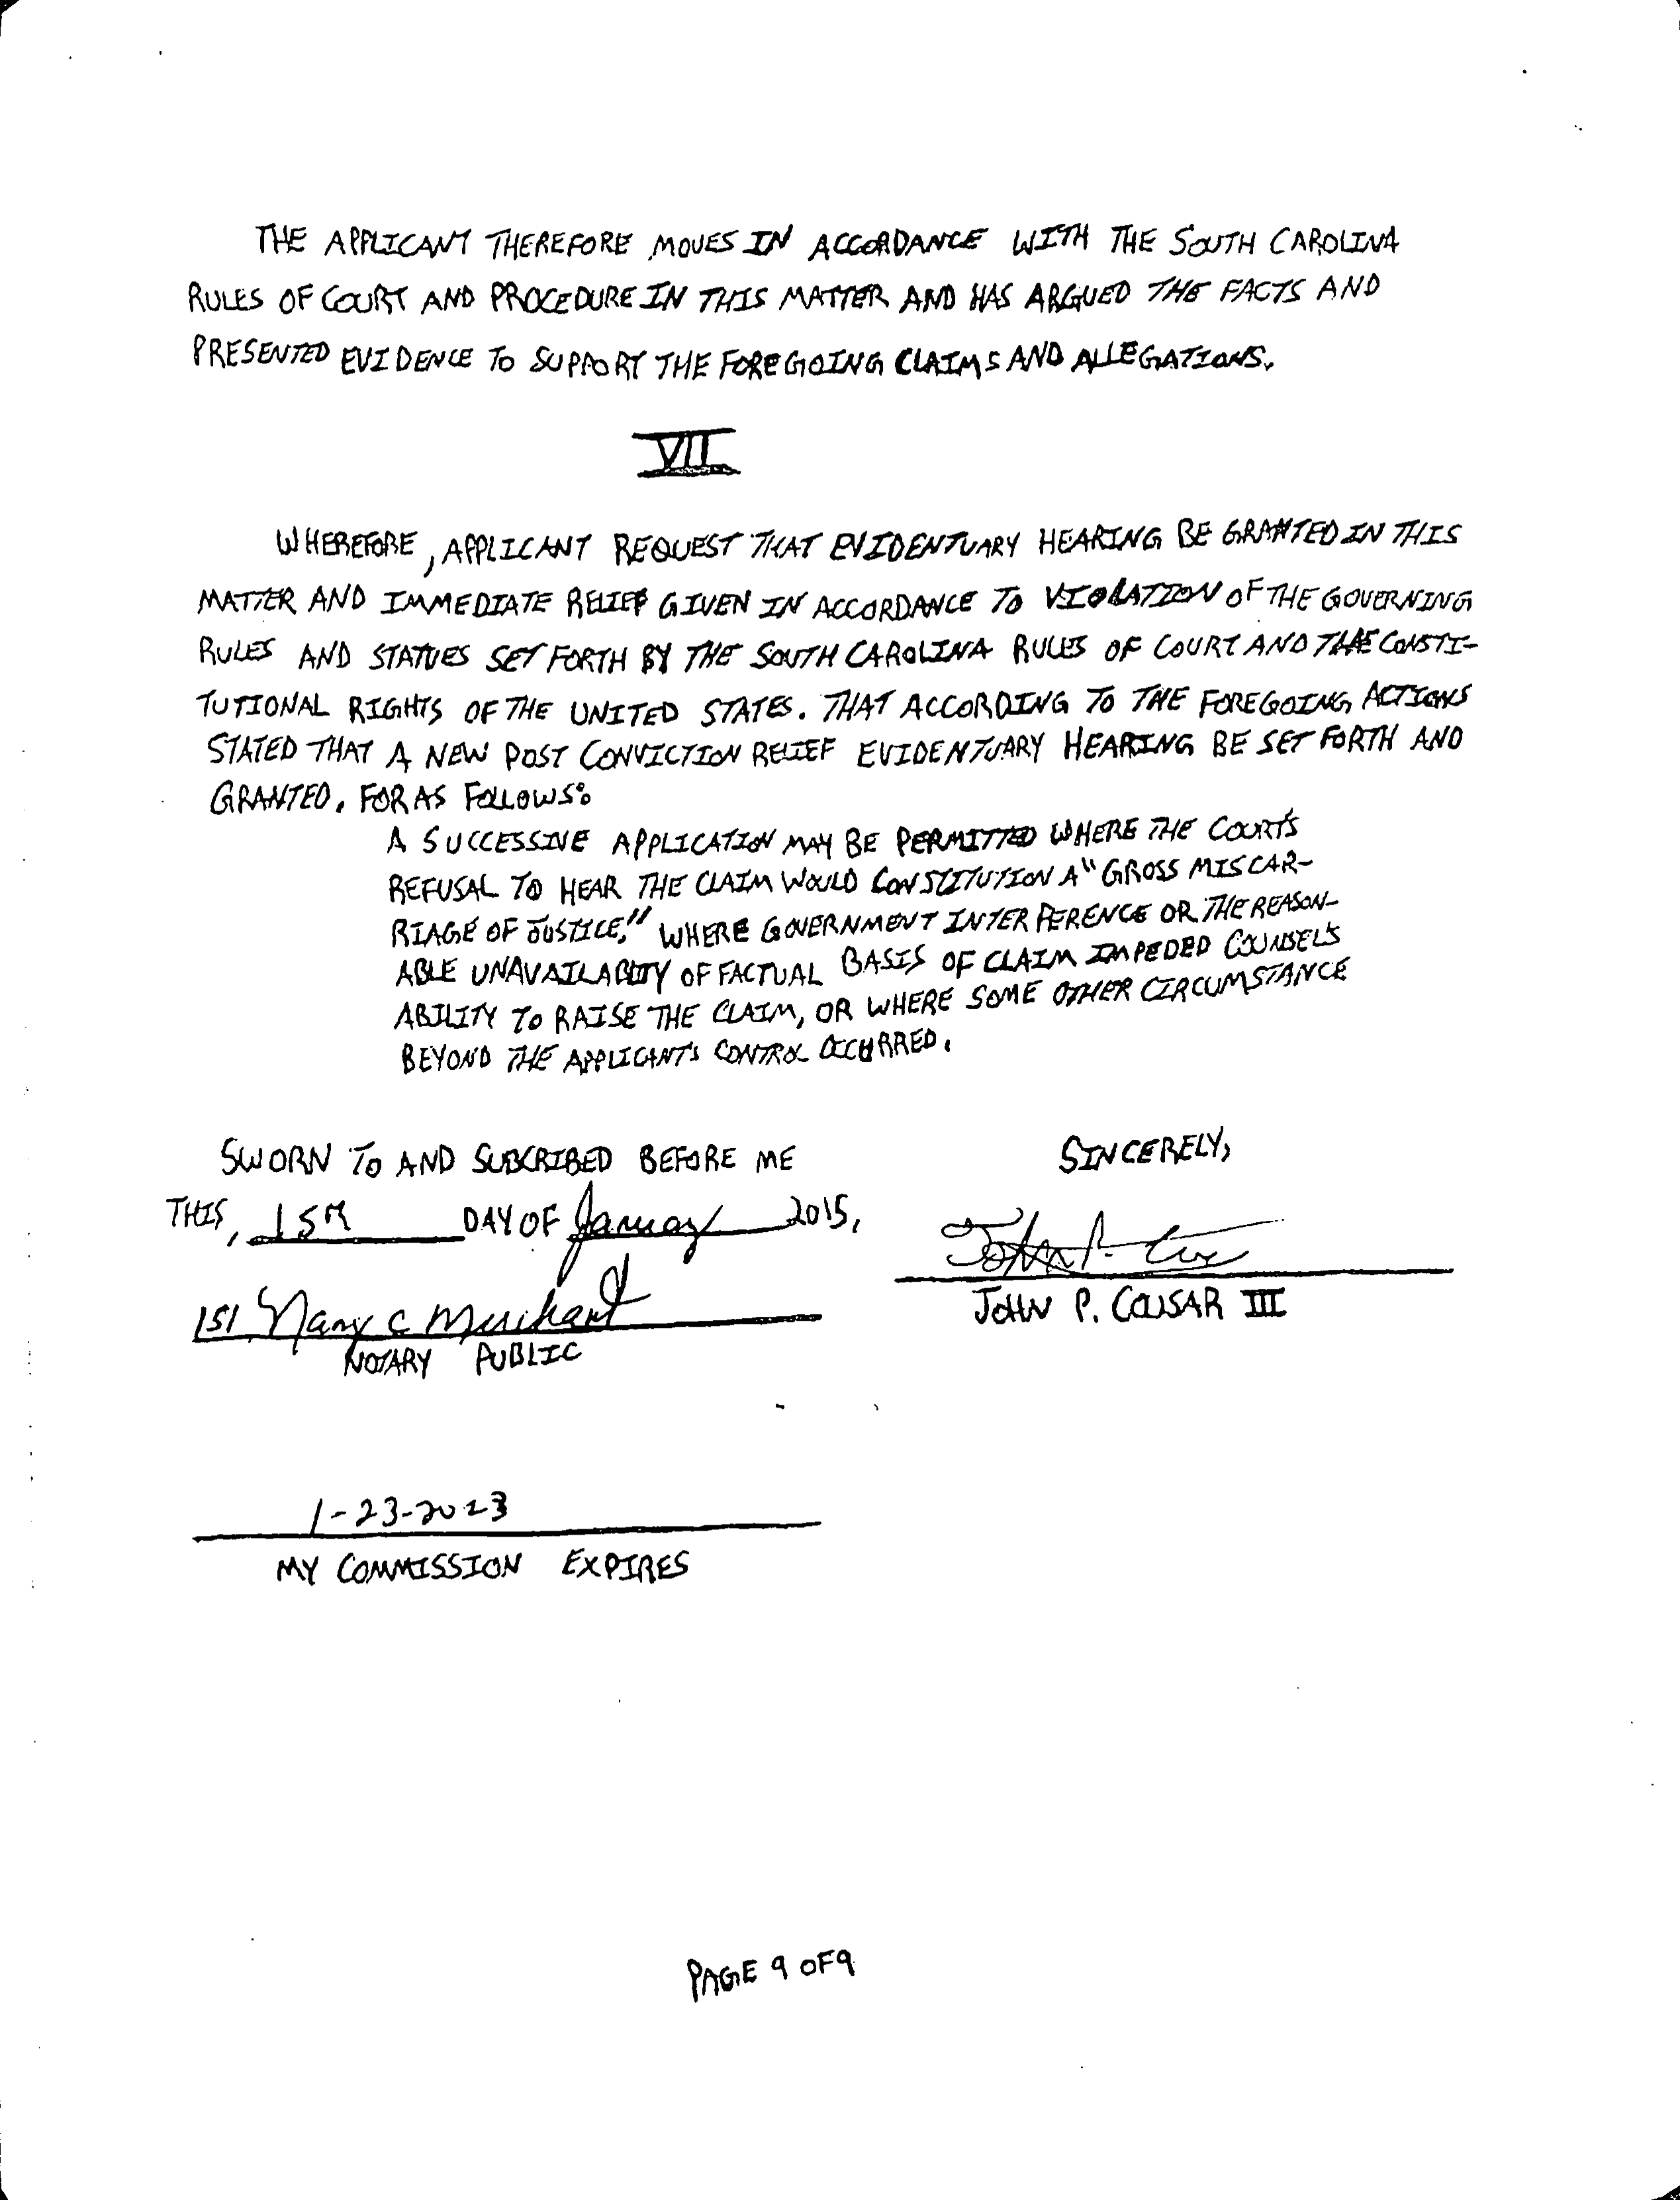 THE APPLICANT THEREFORE MOVES IN ACCORDANCE WITH THE SOUTH CAROLINA
RULES OF COURT AND PROCEDURE IN THIS MATTER AND HAS ARGUED THE FACTS AND
PRESENTED EVIDENCE TO SUPPORT THE FOREGOING CLAIMS AND ALLEGATIONS.
VII
WHEREFORE, APPLICANT REQUEST THAT EVIDENTUARY HEARING BE GRANTED IN THIS
MATTER AND IMMEDIATE RELIEF GIVEN IN ACCORDANCE TO VIOLATION OF THE GOVERNING
RULES AND STATUES SET FORTH BY THE SOUTH CAROLINA RULES OF COURT AND THE CONSTI-
TUTIONAL RIGHTS OF THE UNITED STATES. THAT ACCORDING TO THE FOREGOING ACTIONS
STATED THAT A NEW POST CONVICTION RELIEF EVIDENTUARY HEARING BE SET FORTH AND
GRANTED. FOR AS FOLLOWS:
A SUCCESSIVE APPLICATION MAY BE PERMITTED WHERE THE COURT'S
REFUSAL TO HEAR THE CLAIM WOULD CONSTITUTION A "GROSS MISCAR-
RIAGE OF JUSTICE," WHERE GOVERNMENT INTERFERENCE OR THE REASON-
ABLE UNAVAILABLITY OF FACTUAL BASIS OF CLAIM IMPEDED COUNSEL'S
ABILITY TO RAISE THE CLAIM, OR WHERE SOME OTHER CIRCUMSTANCE
BEYOND THE APPLICANT'S CONTROL OCCURRED.
SWORN TO AND SUBSCRIBED BEFORE ME
SINCERELY,
THIS, 15th DAY OF January 2015,
John P.
JOHN P. COUSAR III
/S/ Nany C Merchant
NOTARY PUBLIC
1-23-2023
MY COMMISSION EXPIRES
PAGE 9 OF 9